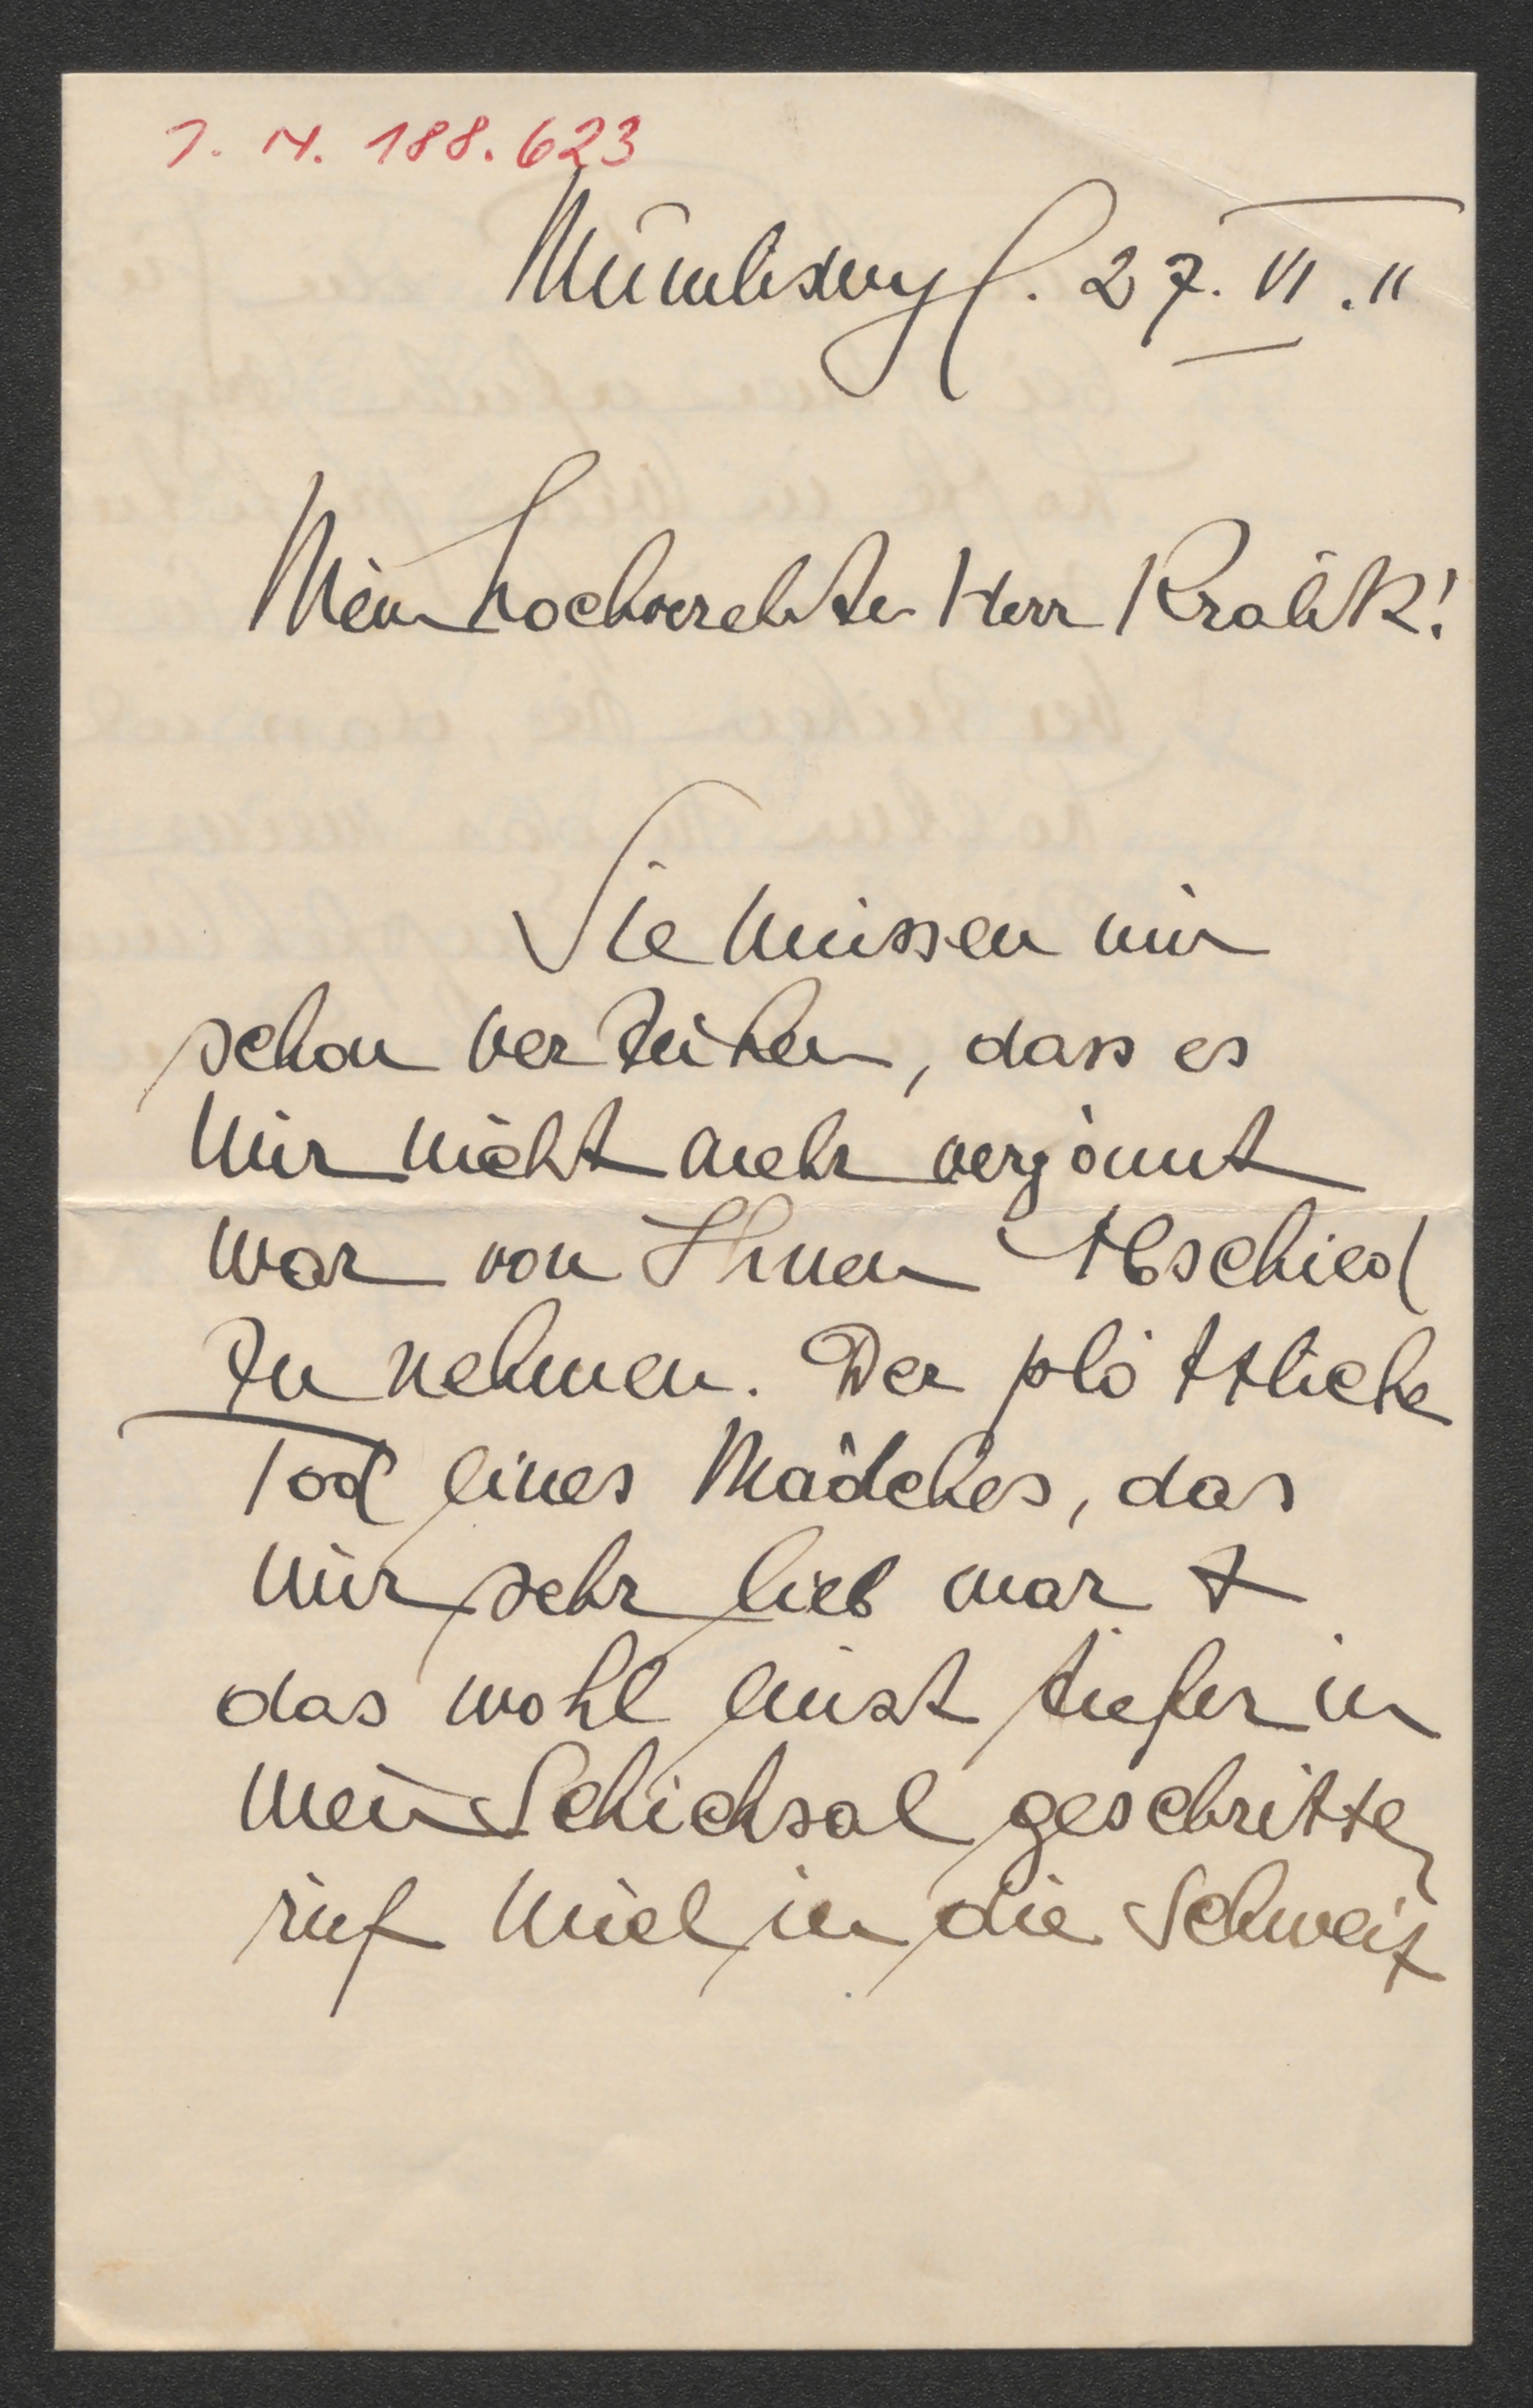 J. N. 188.623
Mümliswyl. 27. VI. 11
Mein hochverehrter Herr Kralik!
Sie müssen mir
schon verzeihen, dass es
mir nicht mehr vergönnt
war von Ihnen Abschied
zu nehmen. Der plötzliche
Tod eines Mädches, das
mir sehr lieb war &
das wohl einst tiefer in
mein Schicksal geschritten
rief mich in die Schweiz